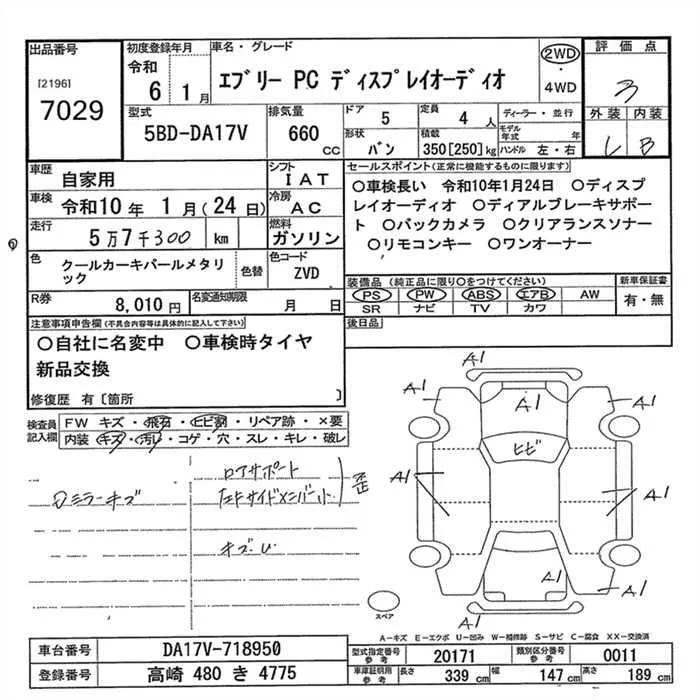 出品番号 初度登録年月 車名・グレード 評価点
[2196]
7029
令和
6 1月
エブリー PC ディスプレイオーディオ
2WD
・
4WD
3
外装 内装
B
型式 排気量 ドア 定員 ディーラー・並行
5BD-DA17V 660 CC 5 4人
形状 積載 モデル年式 年
バン 350[250]kg ハンドル 左・右
車歴 自家用 シフト IAT
車検 令和10年 1月(24日) 冷房 AC
走行 5万7千300 km 燃料 ガソリン
色 クールカーキパールメタリック 色替 色コード ZVD
R券 8,010円 名変通知期限 月 日
セールスポイント(正常に機能するものに限ります)
○車検長い 令和10年1月24日 ○ディスプ
レイオーディオ ○ディアルブレーキサポー
ト ○バックカメラ ○クリアランスソナー
○リモコンキー ○ワンオーナー
装備品 (純正品に限り○をつけてください) 新車保証書
PS PW ABS エアB AW 有・無
SR ナビ TV カワ
後日品
注意事項申告欄(不具合内容等は具体的に記入して下さい)
○自社に名変中 ○車検時タイヤ
新品交換
修復歴 有〔箇所 〕
検査員記入欄
FW キズ・飛石・ヒビ割・リペア跡・×要
内装 キズ・汚れ・コゲ・穴・スレ・キレ・破レ
ミラーキズ
コアサポート
左Fサイドメンバー小
歪
キズ・U
A1
A1 A1 A1
ヒビ
A1 A1
A1 A1
A1
スペア
A-キズ E-エクボ U-凹み W-補修跡 S-サビ C-腐食 XX-交換済
車台番号 DA17V-718950
登録番号 高崎 480 き 4775
型式指定番号 参考 20171 類別区分番号 参考 0011
車庫証明用 参考 長さ 339 cm 幅 147 cm 高さ 189 cm